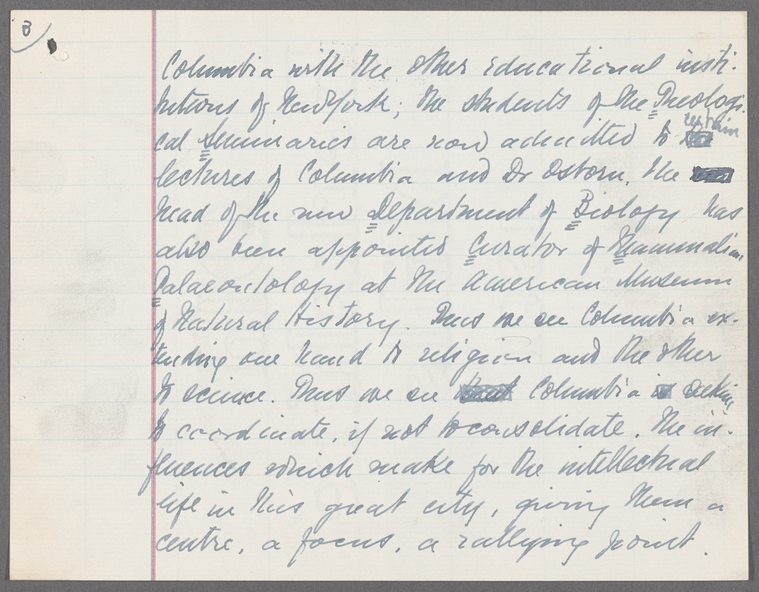 8
Columbia with the other educational insti-
tutions of New York; the students of the Theologi-
cal Seminaries are now admitted to certain
lectures of Columbia and Dr Osborn, the
head of the new Department of Biology has
also been appointed Curator of Mammalian
Palaeontology at the American Museum
of Natural History. Thus we see Columbia ex-
tending one hand to religion and the other
to science. Thus we see Columbia seeking
to coordinate, if not to consolidate, the in-
fluences which make for the intellectual
life in this great city, giving them a
centre, a focus, a rallying point.